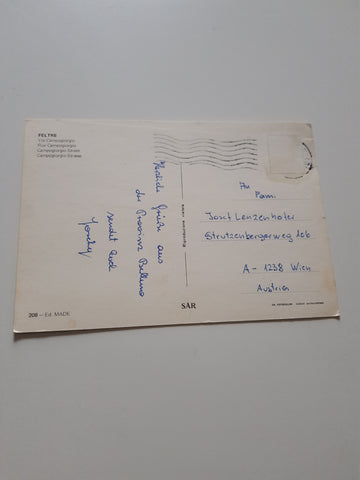 FELTRE
Via Campogiorgio
Rue Campogiorgio
Campogiorgio Street
Campogiorgio Strasse
Herzliche Grüße aus
der Provinz Belluno
sendet Euch
An
Fam.
Josef Lenzenhofer
Strutzenbergerweg 16
A - 1238 Wien
Austria
SAR
208 — Ed. MADE